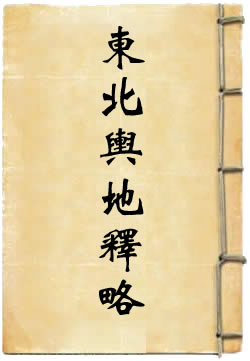 東北輿地釋略